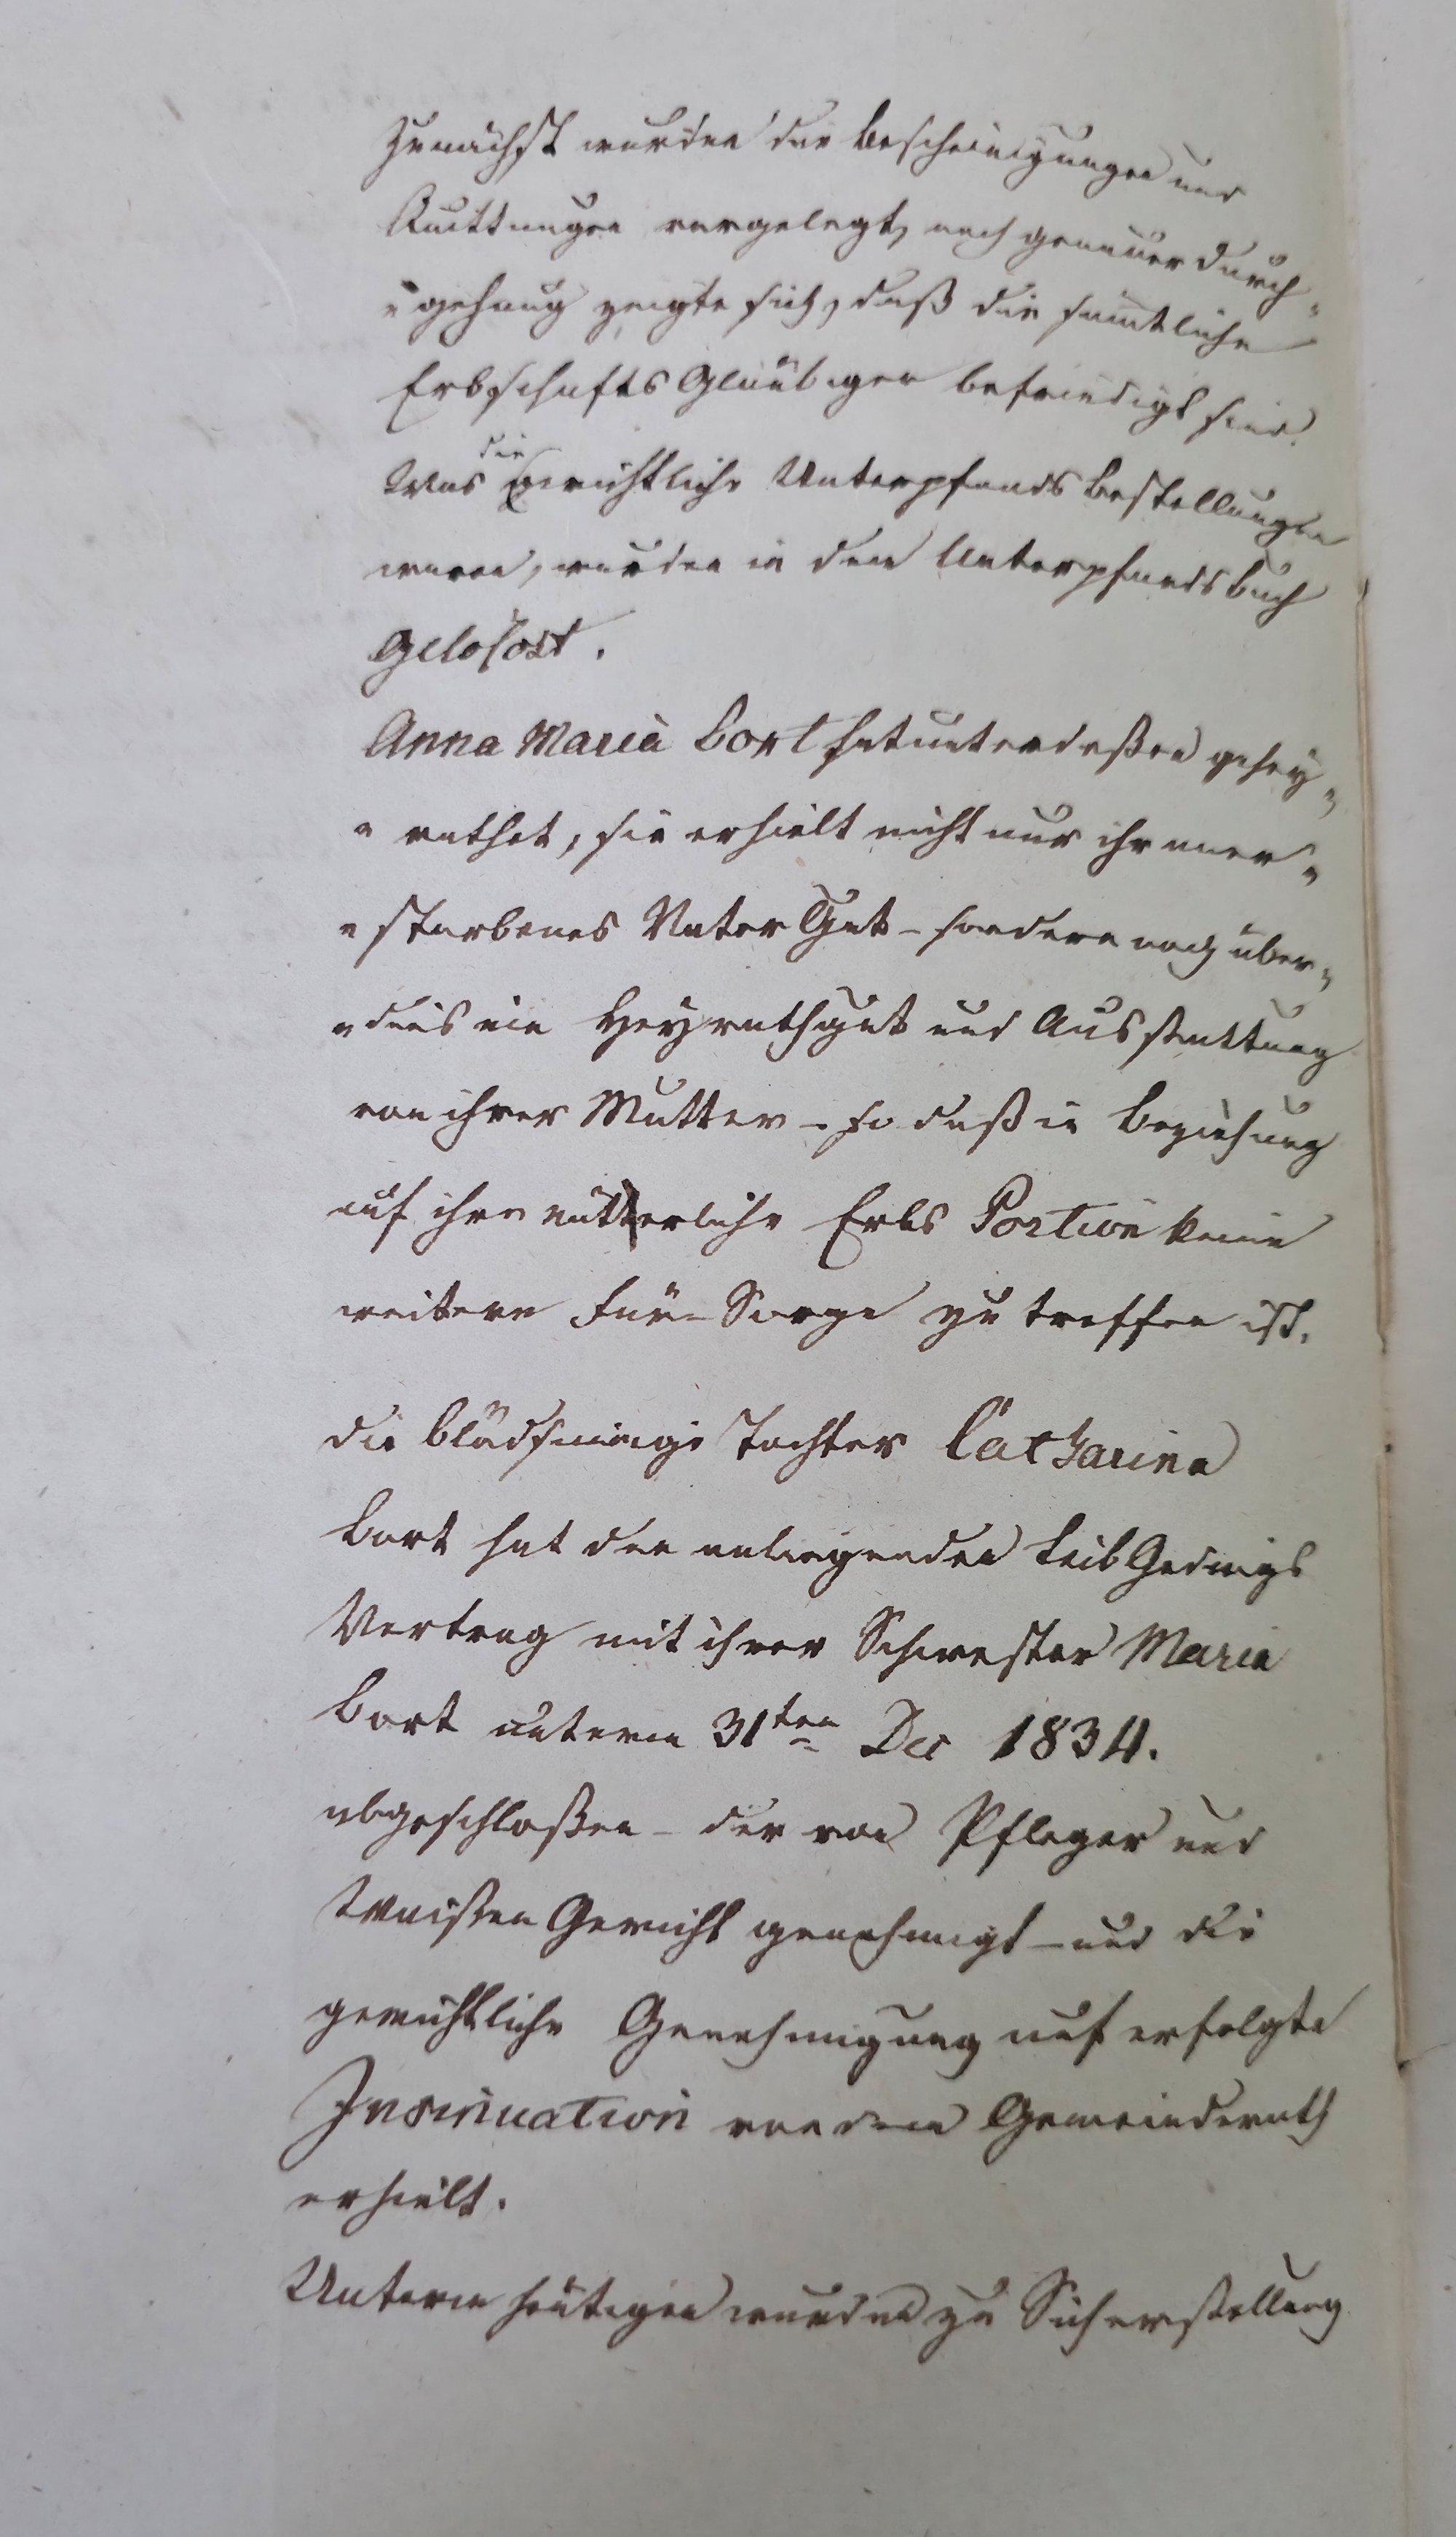 Zunächst wurden die Bescheinigungen und
Quittungen vorgelegt, nach genauer Durch„
„gehung zeigte sich, daß die sämtliche
Erbschafts Glaübiger befriedigt sind.
Was die gerichtliche Unterpfands Bestellungen
waren, wurden in dem Unterpfands buch
gelöscht.
Anna Maria Bort hat unterdeßen gehey„
„rathet, sie erhielt nicht nur ihr aner„
„storbenes Vater Gut – sondern noch über„
„dieß ein Heyrathgut und Ausstattung
von ihrer Mutter – so daß in Beziehung
auf ihre mütterliche Erbs Portion keine
weitere Für-Sorge zu treffen ist.
Die blödsinnige Tochter Catharina
Bort hat den anliegenden Leib Gedings
Vertrag mit ihrer Schwester Maria
Bort unterm 31ten Dec 1834.
abgeschloßen – der von Pfleger und
Waißen Gericht genehmigt – und die
gerichtliche Genehmigung auf erfolgte
Insinuation von dem Gemeinderath
erhielt.
Unterm heutigen wurden zu Sicherstellung